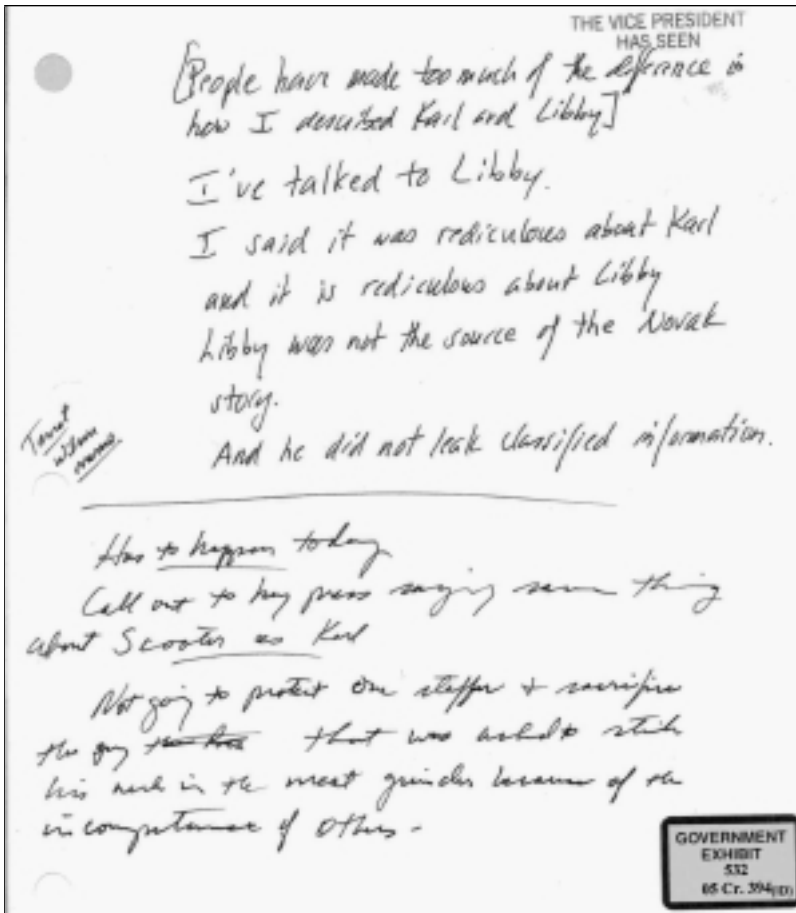 THE VICE PRESIDENT
HAS SEEN
[People have made too much of the difference in
how I described Karl and Libby]
I've talked to Libby.
I said it was rediculous about Karl
and it is rediculous about Libby
Libby was not the source of the Novak
story.
And he did not leak classified information.
Tenet
Wilson
memo
Has to happen today
Call out to key press saying same thing
about Scooter as Karl
Not going to protect one staffer + sacrifice
the guy that was asked to stick
his neck in the meat grinder because of the
incompetence of others -
GOVERNMENT
EXHIBIT
532
05 Cr. 394(ID)